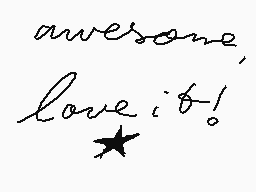 awesome,
love it!